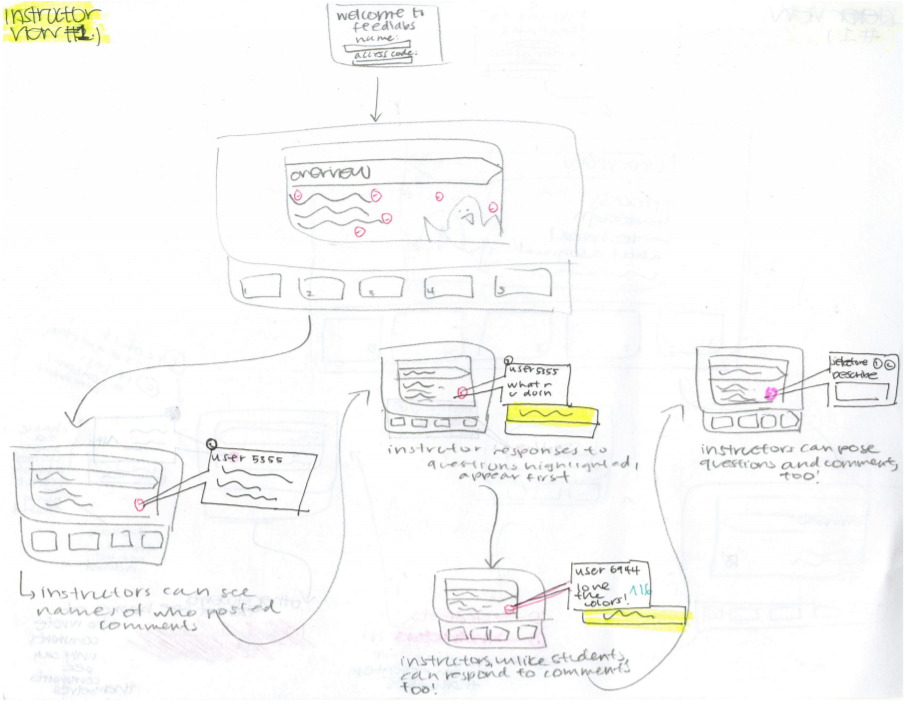 instructor
view #1.)
welcome to
feedlabs
name:
access code:
overview
1 2 3 4 5
user 5355
instructors can see
names of who posted
comments
user 5355
what r
u doin
instructor responses to
questions highlighted,
appear first
user 6944
love
the
colors! 116
instructors, unlike students,
can respond to comments
too!
describe
instructors can pose
questions and comments,
too!